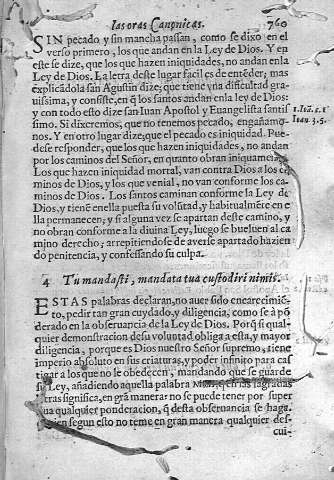 las oras Canonicas. 760
SIN pecado y sin mancha passan, como se dixo en el
verso primero, los que andan en la Ley de Dios. Y en
este se dize, que los que hazen iniquidades, no andan en la
Ley de Dios. La letra deste lugar facil es de entẽder; mas
explicãdola san Agustin dize; que tiene vna dificultad gra-
uissima, y consiste, en q̃ los santos andan en la ley de Dios:
y con todo esto dize san Iuan Apostol y Euangelista santis
simo. Si dixeremos, que no tenemos pecado, engañamo-
nos. Y en otro lugar dize; que el pecado es iniquidad. Pue-
dese responder, que los que hazen iniquidades, no andan
por los caminos del Señor, en quanto obran iniquamente.
Los que hazen iniquidad mortal, van contra Dios a los ca-
minos de Dios, y los que venial, no van conforme los ca-
minos de Dios. Los santos caminan conforme la Ley de
Dios, y tienẽ en ella puesta su volũtad, y habitualmẽte en e-
lla permanecen; y si alguna vez se apartan deste camino, y
no obran conforme a la diuina Ley, luego se bueluen al ca-
mino derecho; arrepitiendose de auerse apartado hazien
do penitencia, y confessando su culpa.
1. Iuã. 1.
Ioan. 3. 5.
4 Tu mandasti, mandata tua custodiri nimis.
ESTAS palabras declaran, no auer sido encarecimiẽ-
to, pedir tan gran cuydado, y diligencia, como se à põ
derado en la obseruancia de la Ley de Dios. Porq̃ si qual-
quier demonstracion de su voluntad obliga a esta, y mayor
diligencia, porque es Dios nuestro Señor supremo, tiene
imperio absoluto en sus criaturas, y poder infinito para cas
tigar a los que no le obedecen, mandando que se guarde
su Ley, añadiendo aquella palabra en las sagradas
tras significa, en grã manera: no se puede tener por super
ua qualquier ponderacion, q̃ desta obseruancia se haga.
ien segun esto no teme en gran manera qualquier des-
cui-